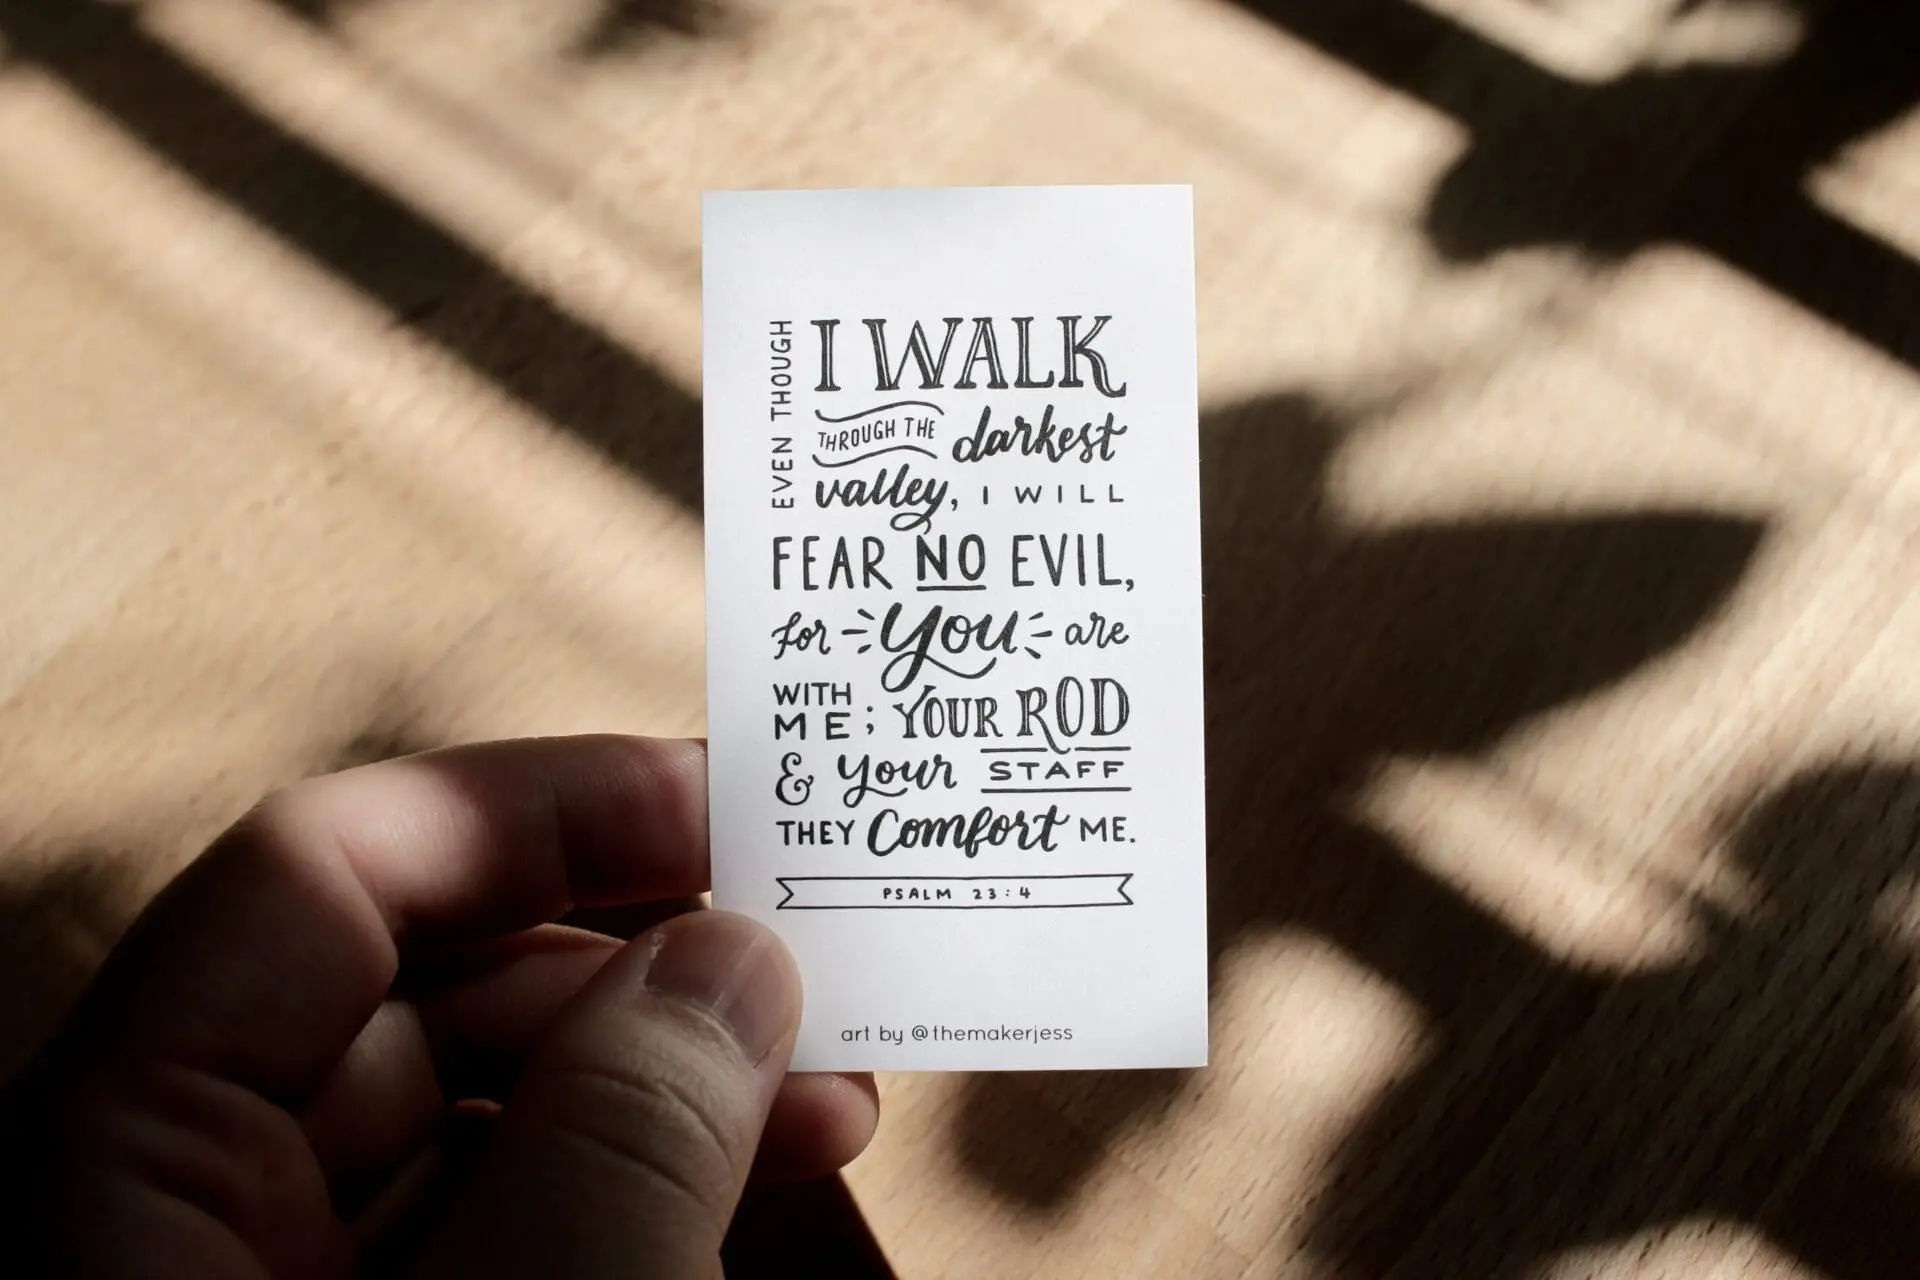 EVEN THOUGH
I WALK
THROUGH THE darkest
valley, I WILL
FEAR NO EVIL,
for You are
WITH ME; YOUR ROD
& your STAFF
THEY Comfort ME.
PSALM 23:4
art by @themakerjess